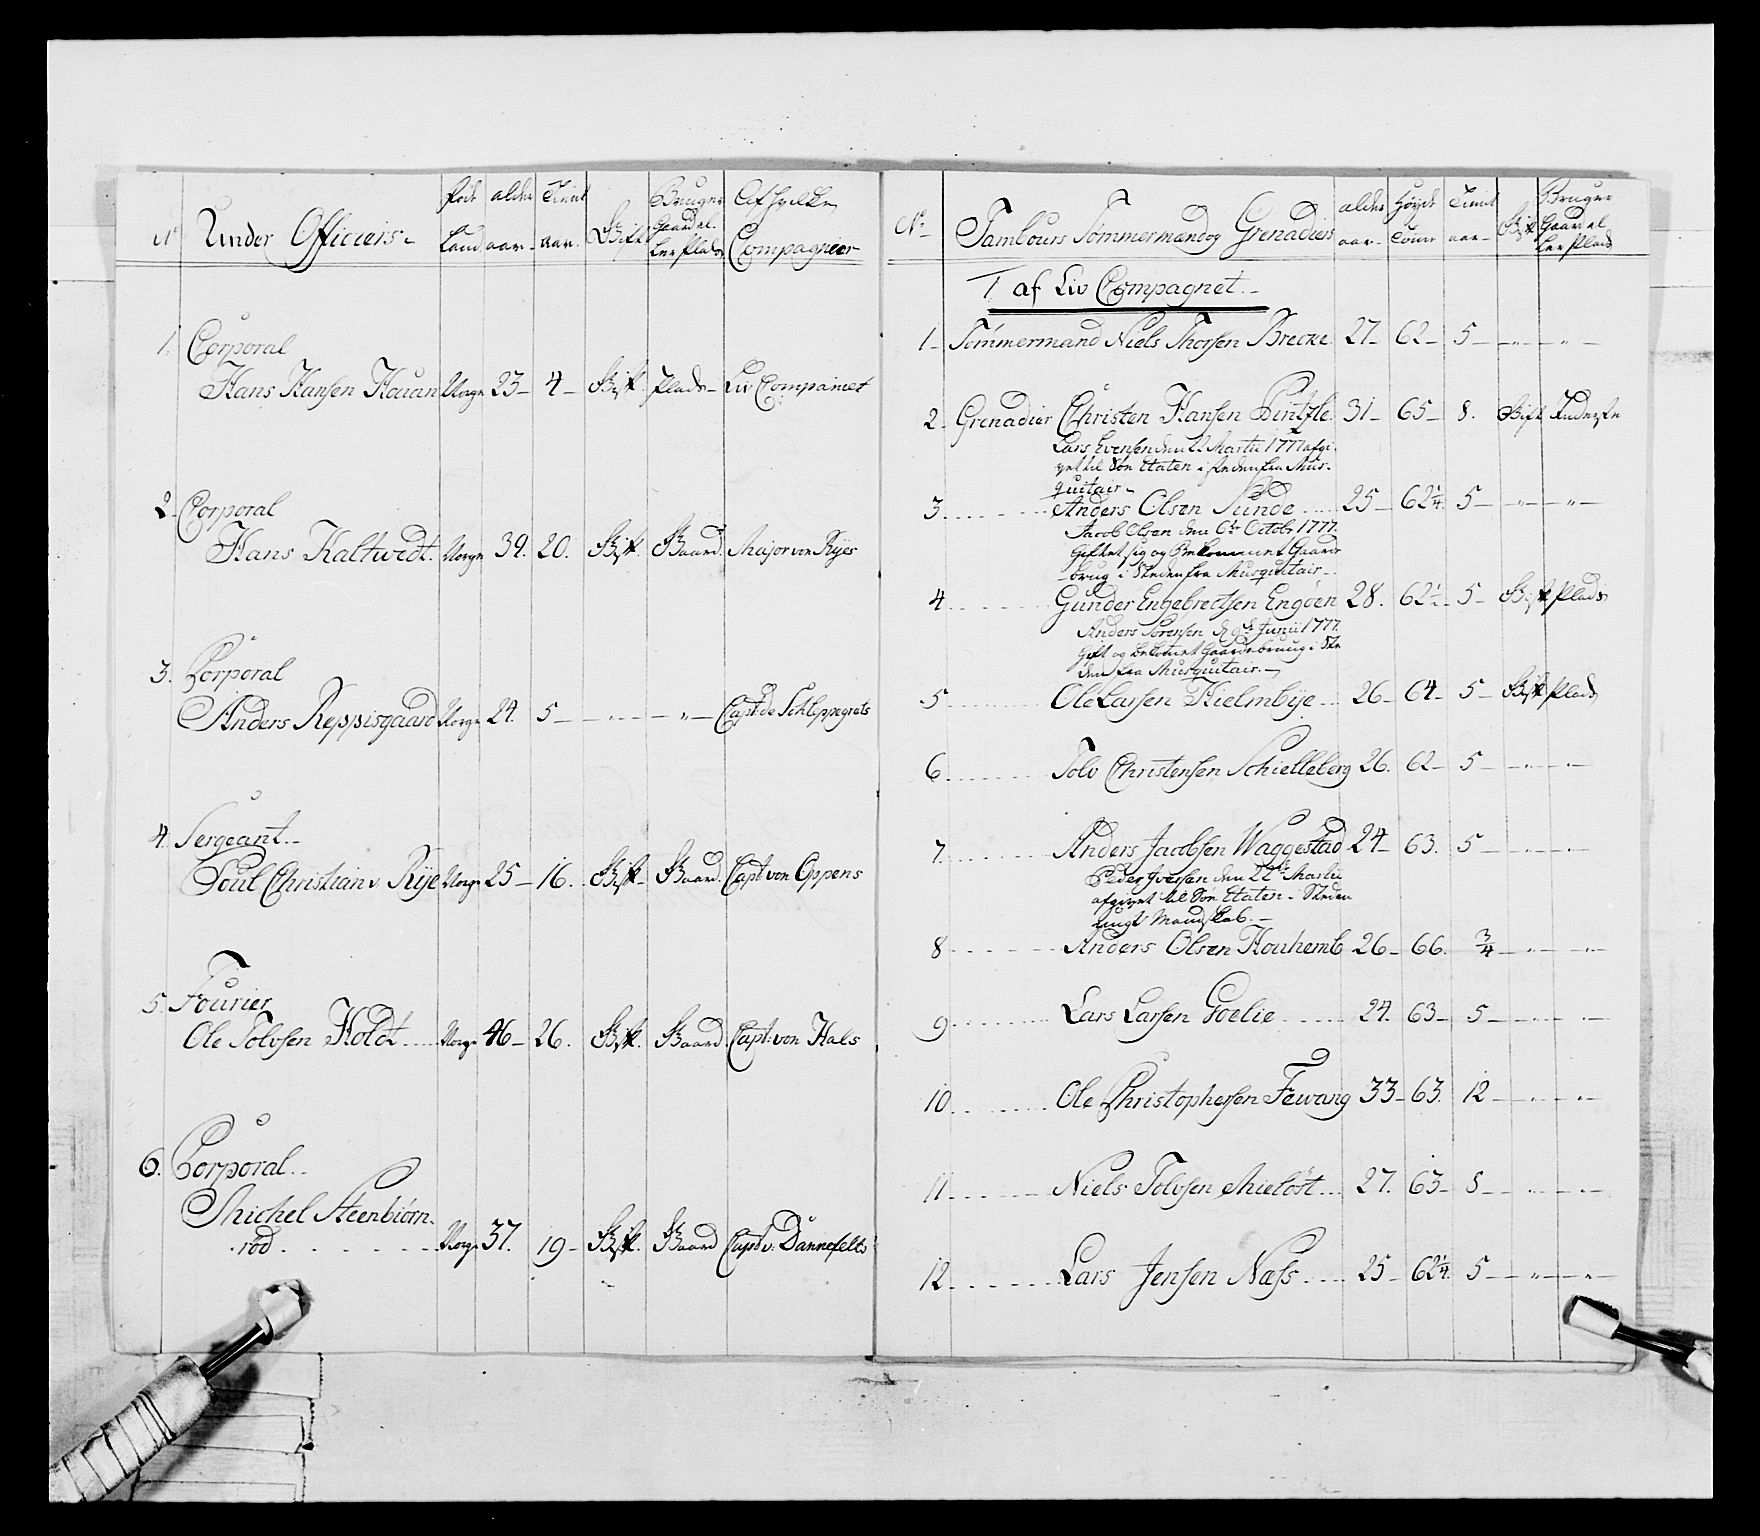 No Under Officiers. føde Land alder aar. Tient aar. Gift Bruger Gaard el- ler Plads Af hvilke Compagnier
1. Corporal
Hans Hansen Houan Norge 23 4 Gift. Plads Liv Compainiet
2. Corporal
Hans Kaltvedt. Norge 39. 20. Gift. Gaard. Major von Ryes
3. Corporal
Anders Reppisgaard Norge 24. 5 " " Capt: de Schleppegrels
4. Sergeant.
Poul Christian v Rije Norge 25 16. Gift Gaard. Capt: von Oppens
5. Fourier
Ole Tolvsen Holdt Norge 46 26. Gift. Gaard Capt: von Hals
6. Corporal.
Michel Steenbiørn-
rød Norge 37. 19 Gift. Gaard Capt: v. Dannefelts
No Tambours Tømmermænd og Grenadiers alder aar Høyde Tomer Tient aar Gift Bruger Gaard el ler Plads
I af Liv Compagnet.
1 Tømmermand Niels Thorsen Brecke 27 62 5 " "
2 Grenadier Christen Hansen 31 65 8. Gift Inderste
Lars Evensen den 22 Martii 1777 afgi-
vet til Søe Etaten i steden fra Mus-
quitair
3. Anders Olsen Sunde 25 62 1/4. 5 " "
Jacob Olsen den 6te Octobr 1777.
Giftet sig og Bekommet Gaard
brug i Steden fra Musquitair
4 Gunder Engebrectsen Engøen 28. 62 1/2 5 Gift Plads
Anders Sørensen d. 9de Junii 1777.
Gift og bekomet Gaardebrug i Ste
den fra Musquitair.
5 Ole Larsen Hielmbije 26 64 5 Gift Plads
6 Tolv Christensen Schielleberg 26. 62 5 " "
7. Anders Jacobsen Waggestad 24 63. 5 " "
Peder Iversen den 22de Martii
afgivet til Søe Etaten i Steden
ungt Mandskab.
8 Anders Olsen Houhemb 26 66. 3/4 " "
9 Lars Larsen Goelie 24. 63 5 " "
10 Ole Christophersen Fewang 33 63. 12 " "
11 Niels Tolvsen Mieløst 27. 63 8 " "
12 Lars Jensen Næss 25 62 1/4. 5 " "